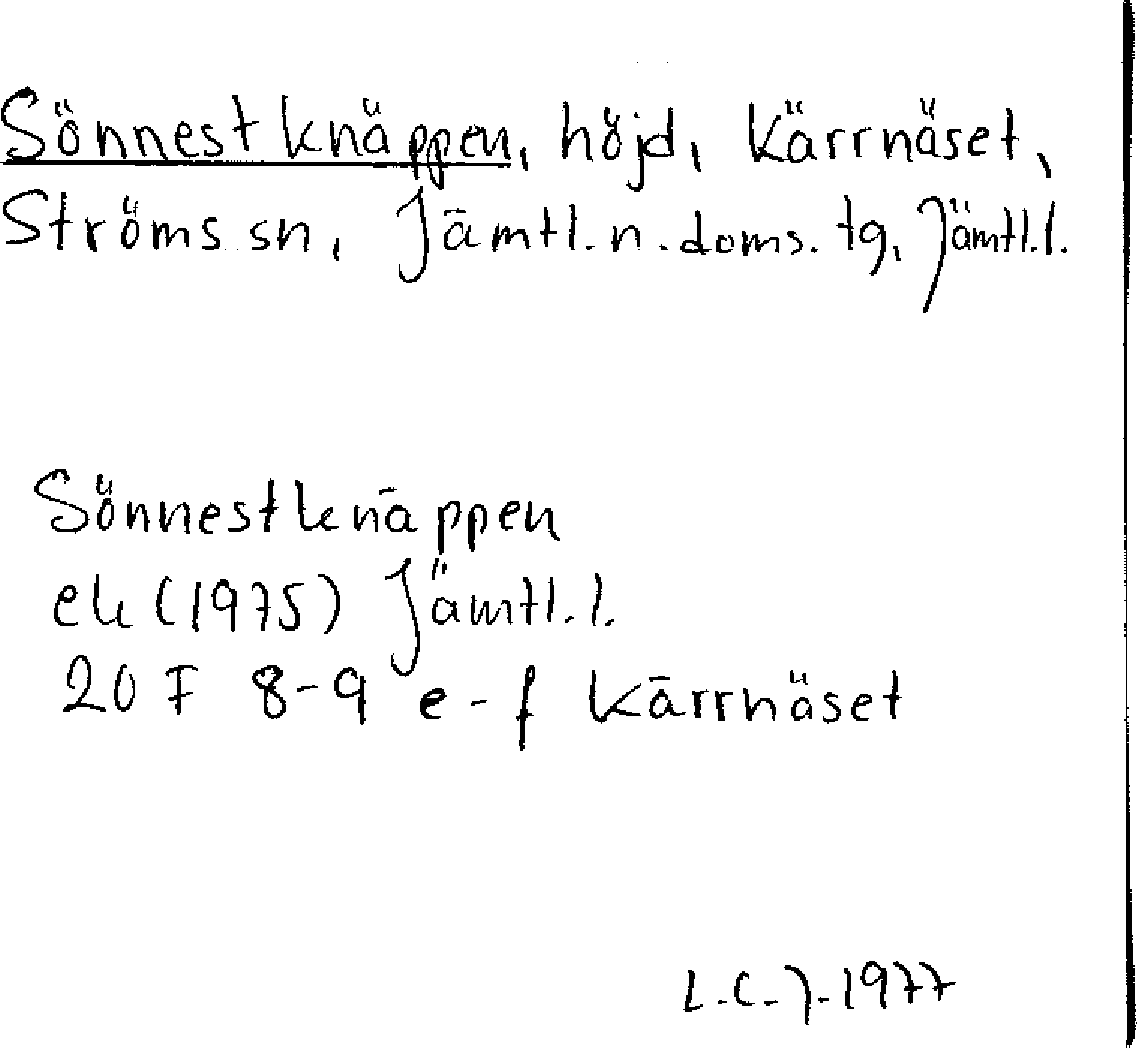 Sönnestknäppen, höjd, Kärrnäset,
Ströms sn, Jämtl. n. doms. tg, Jämtl. l.
Sönnestknäppen
ek (1975) Jämtl. l.
20 F 8-9 e-f Kärrnäset
L.C.J. 1977